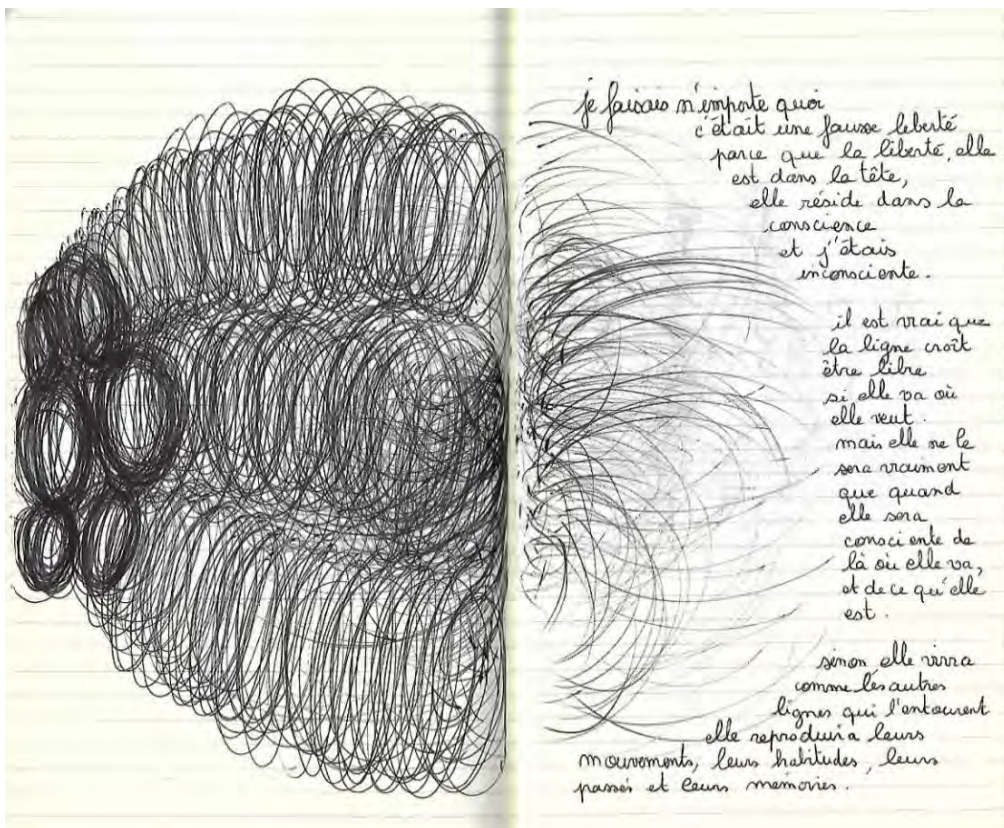 je faisais n'importe quoi
c'était une fausse leberté
parce que la liberté, elle
est dans la tête,
elle réside dans la
conscience
et j'étais
inconsciente.
il est vrai que
la ligne croît
être libre
si elle va où
elle veut.
mais elle ne le
sera vraiment
que quand
elle sera
consciente de
là où elle va,
et de ce qu'elle
est.
sinon elle vivra
comme les autres
lignes qui l'entourent
elle reproduira leurs
mouvements, leurs habitudes, leurs
passés et leurs mémoires.